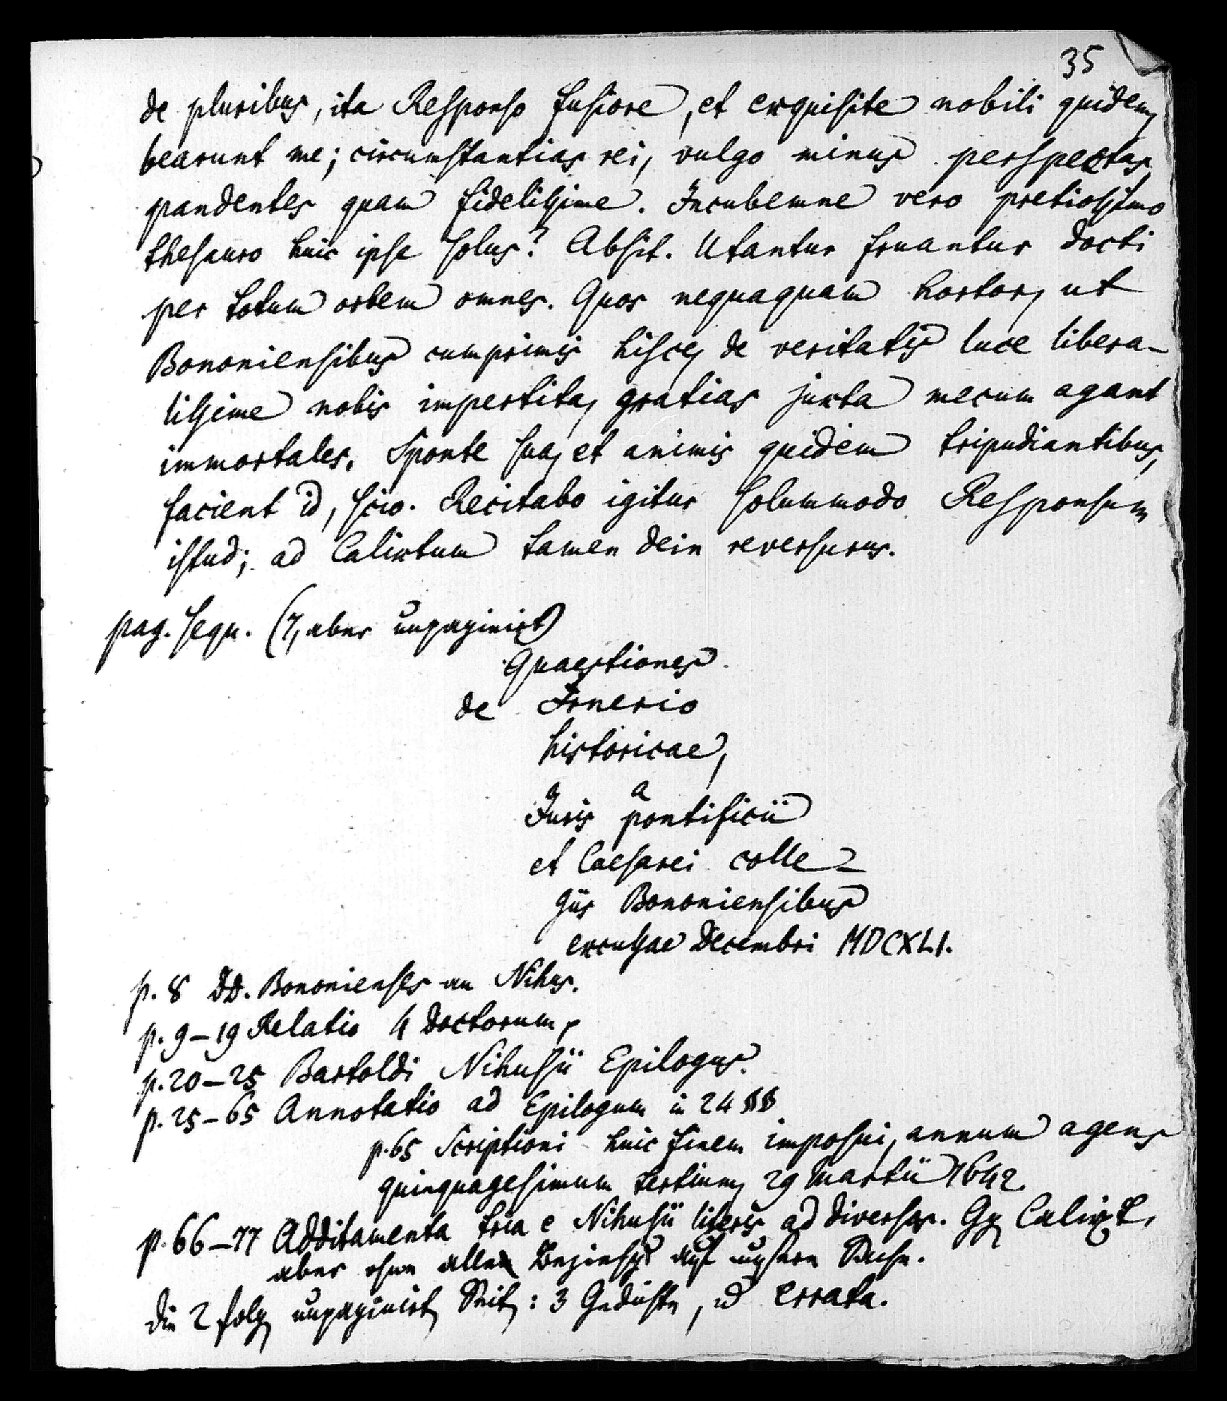 35
de pluribus, ita Responso fusiore, et exquisite nobili quidem,
bearunt me; circumstantias rei, vulgo minus perspectas,
pandentes quam fidelissime. Incubemne vero pretiosissimo
thesauro huic ipse solus? Absit. Utantur fruantur docti
per totum orbem omnes. Quos nequaquam hortor, ut
Bononiensibus cumprimis hisce, de veritatis luce libera-
lissime nobis impertita, gratias juxta mecum agant
immortales. Sponte sua, et animis quidem tripudiantibus,
facient id, scio. Recitabo igitur solummodo Responsum
istud; ad Calixtum tamen dein reversurus.
pag. sequ. (7, aber unpaginirt)
Quaestiones
de Irnerio
historicae,
a
Juris pontificii
et Caesarei colle-
giis Bononiensibus
excussae Decembri MDCXLI.
p. 8 DD. Bononienses an Nihus.
p. 9-19 Relatio 4 Doctorum,
p. 20-25 Bartoldi Nihusii Epilogus.
p. 25-65 Annotatio ad Epilogum in 24 §§
p. 65 Scriptioni huic finem imposui, annum agens
quinquagesimum tertium, 29 Martii 1642.
p. 66-77 Additamenta tria e Nihusii literis ad diversos. Gg Calixt,
aber ohne alle Beziehg auf unsern Sache.
Die 2 folg unpaginirt Seit: 3 Gedichte, u errata.